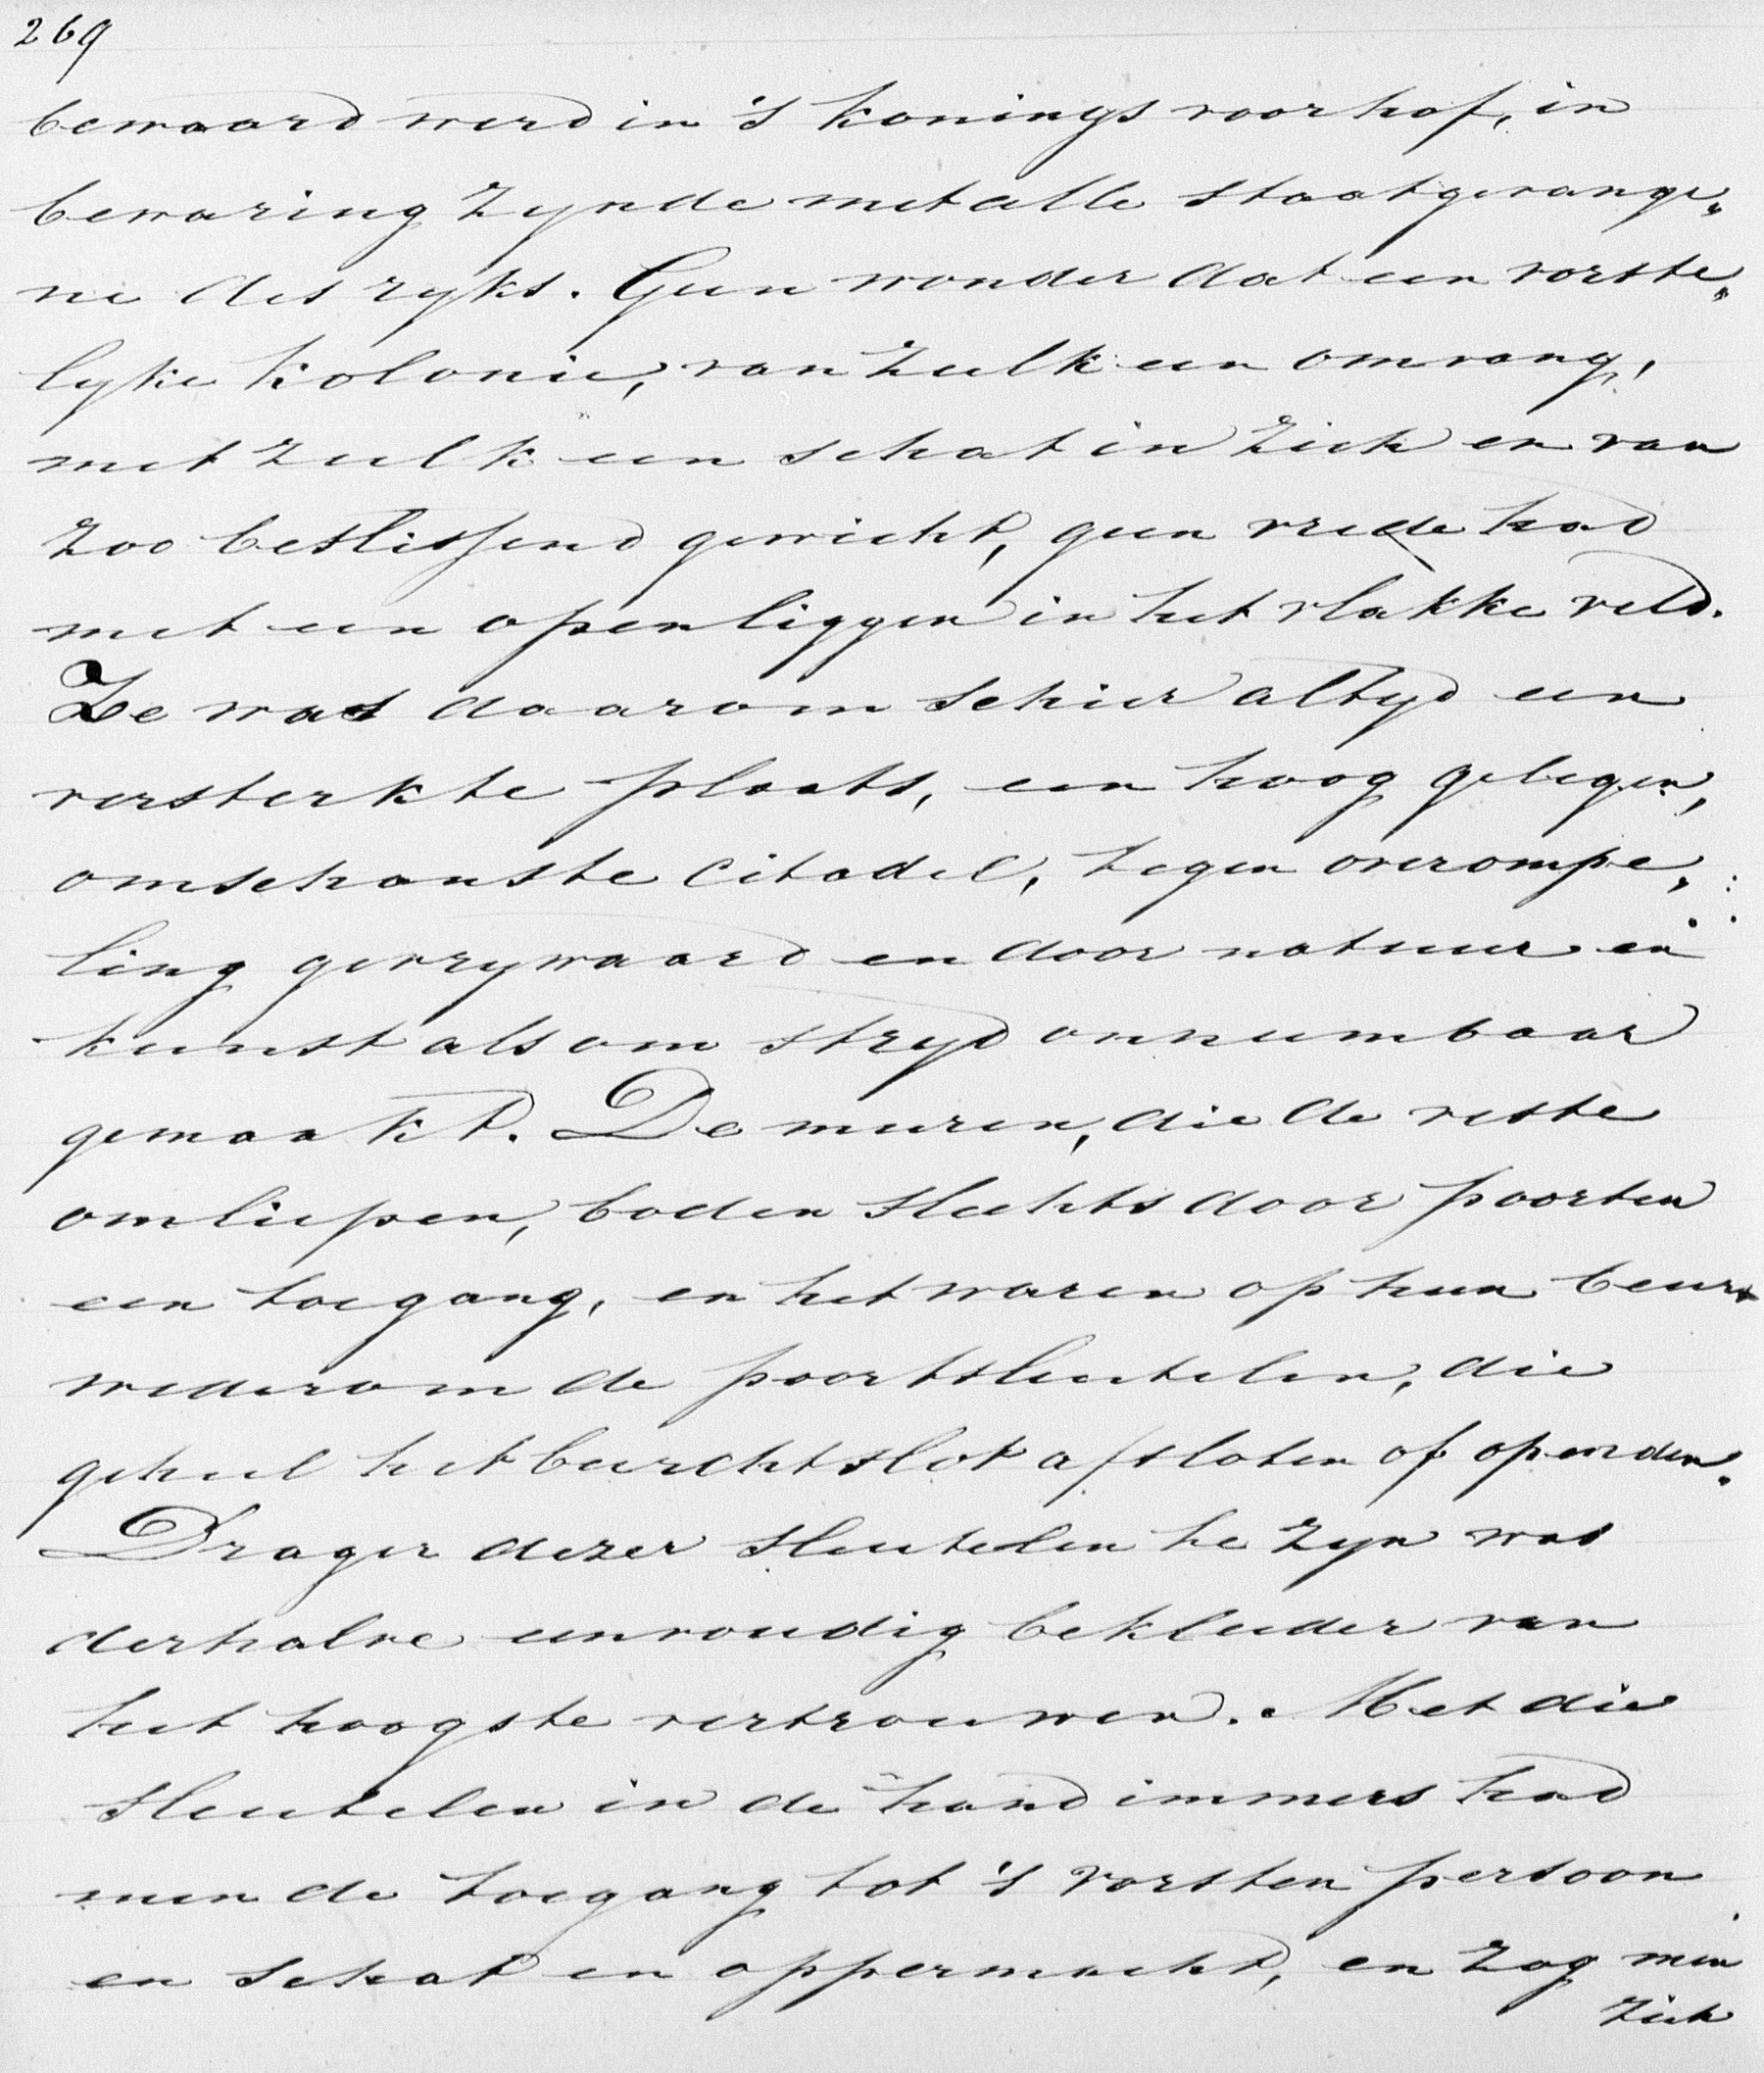 269
bewaard werd in 's konings voorhof, in
bewaring zynde met alle staatgevange„
ne des ryks. Geen wonder dat een vorste„
lyke kolonie, van zulk een omvang,
met zulk een schat in zich en van
zoo beslissend gewicht, geen vrede had
met een openliggen in het vlakke veld.
Ze was daarom schier altyd een
versterkte plaats, een hoog gelegen,
omschanste citadel, tegen overrompe„
ling gevrywaard en door natuur en
kunst als om stryd onneembaar
gemaakt. De muren, die de veste
omliepen, boden slechts door poorten
een toegang, en het waren op hun beurt
wederom de poortsleutelen, die
geheel het burchtslot afsloten of openden.
Drager dezer sleutelen te zyn was
derhalve eenvoudig bekleeder van
het hoogste vertrouwen. Met die
sleutelen in de hand immers had
men de toegang tot 's vorsten persoon
en schat en oppermacht, en zag men
zich